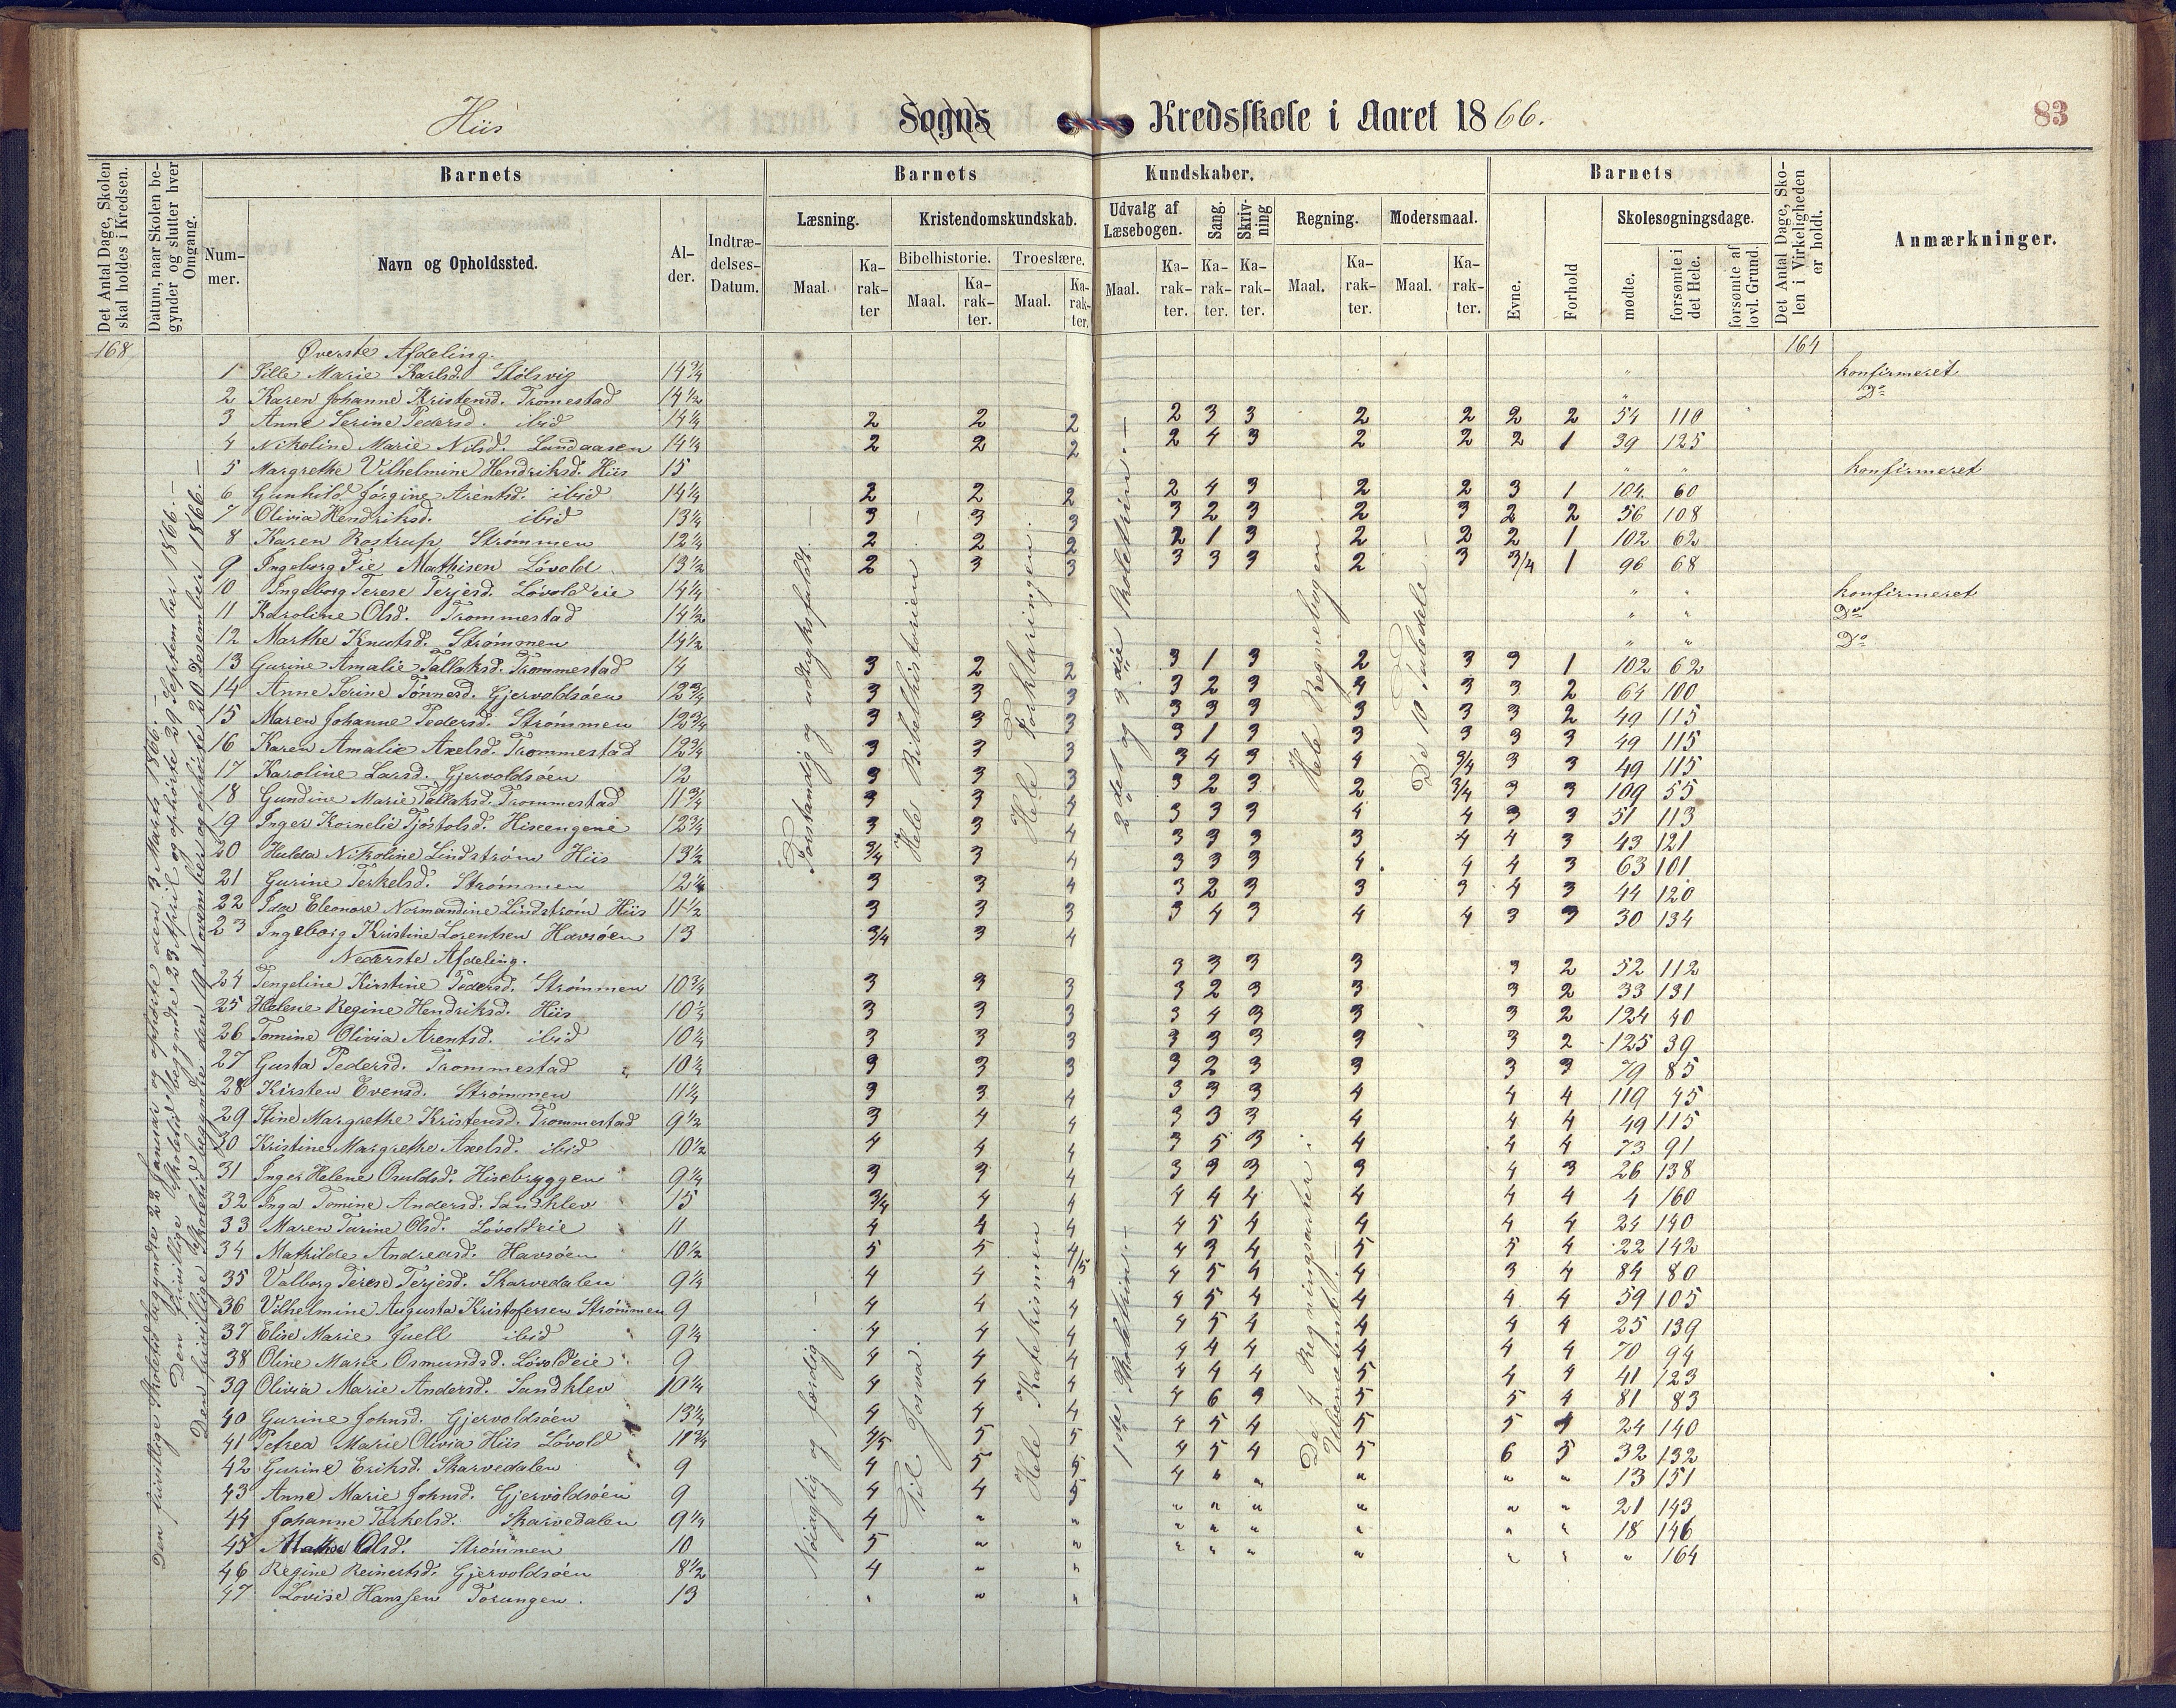 Hiis Sogns Kredsskole i Aaret 1866. 83
Det Antal Dage, Skolen skal holdes i Kredsen.
Datum, naar Skolen begynder og slutter hver Omgang.
Barnets
Nummer.
Navn og Opholdssted.
Alder.
Indtrædelses-Datum.
Barnets Kundskaber.
Læsning.
Maal.
Karakter
Kristendomskundskab.
Bibelhistorie.
Maal.
Karakter.
Troeslære.
Maal.
Karakter.
Udvalg af Læsebogen.
Maal.
Karakter.
Sang.
Karakter.
Skrivning
Karakter.
Regning.
Maal.
Karakter.
Modersmaal.
Maal.
Karakter.
Barnets
Evne.
Forhold
Skolesøgningsdage.
mødte.
forsømte i det Hele.
forsømte af lovl. Grund.
Det Antal Dage, Skolen i Virkeligheden er holdt.
Anmærkninger.
168 Øverste Afdeling. 164
Den frivillige Skoletid begyndte 22 Januar og ophørte den 3 Marts 1866. —
Den frivillige Skoletid begyndte 23 April og ophørte 29 September 1866. —
Den frivillige Skoletid begyndte den 19 November og ophørte 20 Desember 1866. —
Forstandig og udtryksfuldt. —
Hele Bibelhistorien. —
Hele Forklaringen.
2det og 3die Skoletrin. —
Hele Regnebogen. —
De 10 Taledele. —
1 Sille Marie Karlsd. Stølsvig 14 3/4 " konfirmeret
2 Karen Johanne Kristensd. Tromestad 14 1/2 " Do
3 Anne Serine Pedersd. ibid 14 1/4 2 2 2 2 3 3 2 2 2 2 54 110
4 Nikoline Marie Nilsd. Lundaasen 14 1/4 2 2 2 2 4 3 2 2 2 1 39 125
5 Margrethe Vilhelmine Hendriksd. Hiis 15 " " konfirmeret
6 Gunhild Jørgine Arentsd. ibid 14 1/4 2 2 2 2 4 3 2 2 3 1 104 60
7 Olivia Hendriksd. ibid 13 1/4 3 3 3 3 2 3 2 3 2 2 56 108
8 Karen Rostrup Strømmen 12 1/4 2 2 2 2 1 3 2 2 2 1 102 62
9 Ingeborg Fie Mathisen Løvold 13 1/2 2 3 3 3 3 3 2 3 3/4 1 96 68
10 Ingeborg Terese Terjesd. Løvoldeie 14 1/4 " " konfirmeret
11 Karoline Olsd. Trommestad 14 1/2 " " Do
12 Marthe Knutsd. Strømmen 14 1/2 " " Do
13 Gurine Amalie Tallaksd. Trommestad 14 3 2 2 3 1 3 2 3 3 1 102 62
14 Anne Serine Tønnesd. Gjervoldsøen 12 3/4 3 3 3 3 2 3 4 3 3 2 64 100
15 Maren Johanne Pedersd. Strømmen 12 3/4 3 3 3 3 3 3 3 3 3 2 49 115
16 Karen Amalie Axelsd. Trommestad 12 3/4 3 3 3 3 1 3 3 3 3 3 49 115
17 Karoline Larsd. Gjervoldsøen 12 3 3 3 3 4 3 4 3/4 3 3 49 115
18 Gundine Marie Tallaksd. Trommestad 11 3/4 3 3 4 3 2 3 2 3/4 3 3 109 55
19 Inger Kornelie Tjøstolsd. Hisengene 12 3/4 3 3 4 3 3 3 4 4 3 3 51 113
20 Hulda Nikoline Lindstrøm Hiis 13 1/2 3/4 3 4 3 3 3 3 4 4 3 43 121
21 Gurine Terkelsd. Strømmen 12 1/4 3 3 4 3 3 3 4 4 4 3 63 101
22 Ida Eleonore Normandine Lindstrøm Hiis 11 1/2 3 3 3 3 2 3 3 3 4 3 44 120
23 Ingeborg Kristine Lorentsen Havsøen 13 3/4 3 4 3 4 3 4 4 3 3 30 134
Nederste Afdeling.
Nøiagtig og færdig. —
Til Josva.
Hele Katekismen
1ste Skoletrin. —
De 4 Regningsarter i Ubenevnte Tal. —
24 Tengeline Kirstine Pedersd. Strømmen 10 3/4 3 3 3 3 3 3 3 3 2 52 112
25 Helene Regine Hendriksd. Hiis 10 1/2 3 3 3 3 2 3 3 3 2 33 131
26 Tomine Olivia Arentsd. ibid 10 1/4 3 3 3 3 4 3 3 3 2 124 40
27 Gusta Pedersd. Trommestad 10 1/2 3 3 3 3 3 3 3 3 2 125 39
28 Kirsten Evensd. Strømmen 11 1/4 3 3 4 3 2 3 3 3 3 79 85
29 Stine Margrethe Kristensd. Trommestad 9 1/2 3 4 4 3 3 3 4 4 4 119 45
30 Kristine Margrethe Axelsd. ibid 10 1/2 4 4 4 3 3 3 4 4 4 49 115
31 Inger Helene Osuldsd. Hisebryggen 9 1/4 3 3 4 3 5 3 4 4 4 73 91
32 Inga Tomine Andersd. Sandklev 15 3/4 4 4 3 3 3 3 4 3 26 138
33 Maren Tarine Olsd. Løvoldeie 11 4 4 4 4 4 4 4 4 4 4 160
34 Mathilde Andreasd. Havsøen 10 1/2 5 5 4/5 4 5 4 4 4 4 24 140
35 Valborg Terese Terjesd. Skarvedalen 9 1/4 4 4 4 4 3 4 5 5 4 22 142
36 Vilhelmine Augusta Kristofersen Strømmen 9 4 4 4 4 5 4 4 3 4 84 80
37 Elise Marie Juell ibid 9 1/4 4 4 4 4 5 4 4 4 4 59 105
38 Oline Marie Osmundsd. Løvoldeie 9 4 4 4 4 5 4 4 4 4 25 139
39 Olivia Marie Andersd. Sandklev 10 1/4 4 4 4 4 4 4 4 4 4 70 94
40 Gurine Johnsd. Gjervoldsøen 13 1/4 4 4 4 4 4 4 5 4 4 41 123
41 Petrea Marie Olivia Hiis Løvold 10 3/4 4/5 5 5 4 6 3 5 5 4 81 83
42 Gurine Eriksd. Skarvedalen 9 4 5 5 4 5 4 5 5 4 24 140
43 Anne Marie Johnsd. Gjervoldsøen 9 4 4 5 4 5 4 5 6 5 32 132
44 Johanne Terkelsd. Skarvedalen 9 1/4 4 " " 4 " " " " " 13 151
45 Mathe Olsd. Strømmen 10 5 " " " " " " " " 21 143
46 Regine Reinertsd. Gjervoldsøen 8 1/2 4 " " " " " " " " 18 146
47 Lovise Hanssen Torungen. 13 " " " " " " " " " " 164